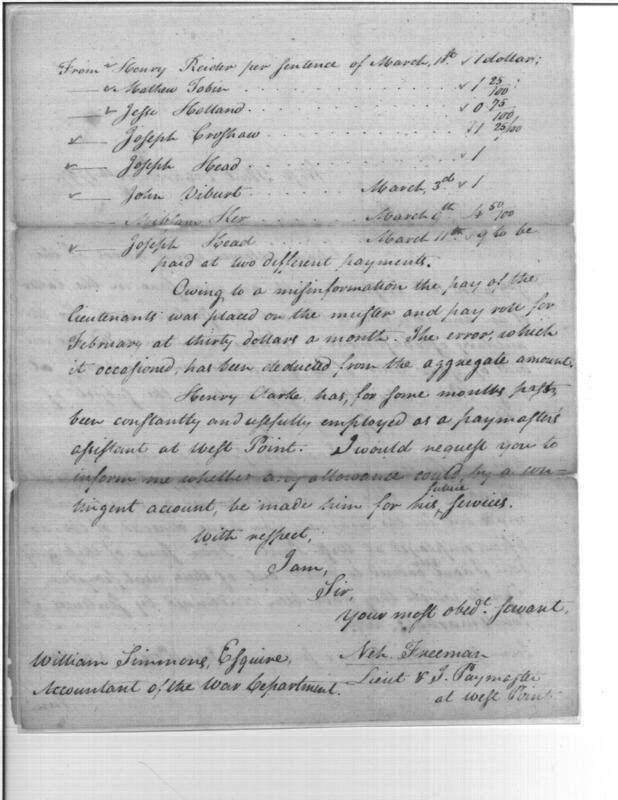 From Henry Reider per sentence of March, 1st. 1 dollar;
Mathew Tobin . . . . . . 1 25/100;
Jesse Holland . . . . . . 0 75/100
Joseph Croshaw . . . . . . 1 25/100
Joseph Head . . . . . . 1
John Viburt . . . . March, 3d. 1
Ker . . . . March 9th 4 50/100
Joseph Head . . . . March 11th. 9 to be
paid at two different payments.
Owing to a misinformation the pay of the
lieutenants was placed on the muster and pay roll for
February at thirty dollars a month. The error, which
it occasioned, has been deducted from the aggregate amount.
Henry Clarke has, for some months past,
been constantly and usefully employed as a paymaster's
assistant at West Point. I would request you to
inform me whether any allowance could, by a con-
tingent account, be made him for his future services.
With respect,
I am,
Sir,
Your most obedt. servant,
Neh Freeman
Lieut & Paymaster
at West Point
William Simmons, Esquire,
Accountant of the War Department.